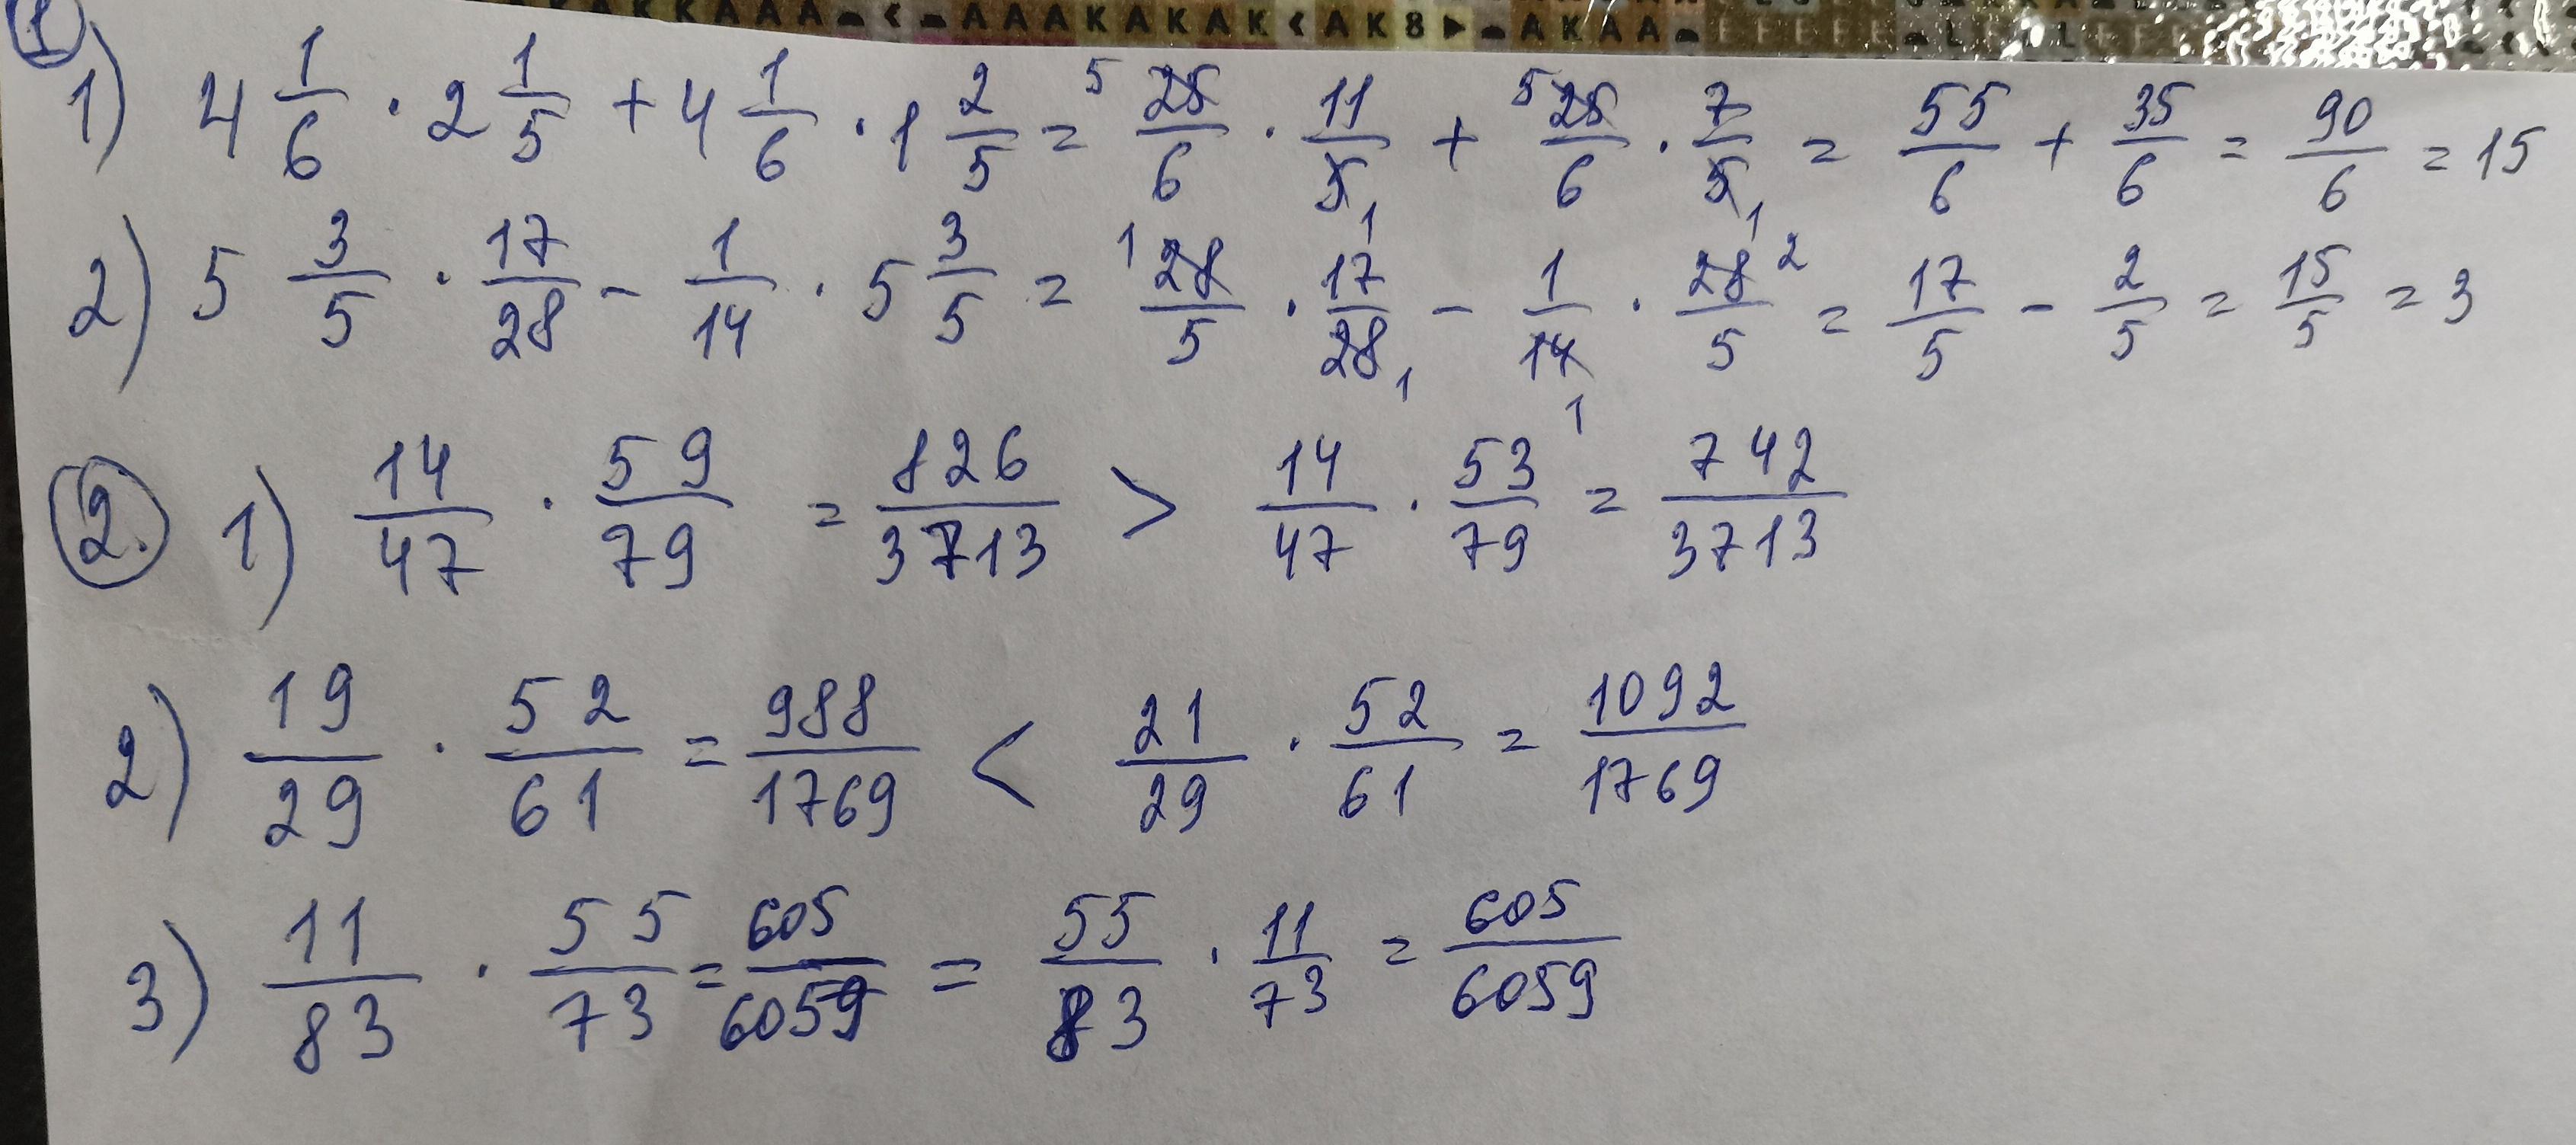 AKAKKAAA☁<☁AAAKAKAK<AK8▶☁AKAA☁FFFFF
①
1) 4 1/6 · 2 1/5 + 4 1/6 · 1 2/5 = ⁵25/6 · 11/5₁ + ⁵25/6 · 7/5₁ = 55/6 + 35/6 = 90/6 = 15
2) 5 3/5 · 17/28 - 1/14 · 5 3/5 = ¹28/5 · 17/28₁ - 1/14₁ · 28²/5 = 17/5 - 2/5 = 15/5 = 3
②. 1) 14/47 · 59/79 = 826/3713 > 14/47 · 53/79 = 742/3713
2) 19/29 · 52/61 = 988/1769 < 21/29 · 52/61 = 1092/1769
3) 11/83 · 55/73 = 605/6059 = 55/83 · 11/73 = 605/6059